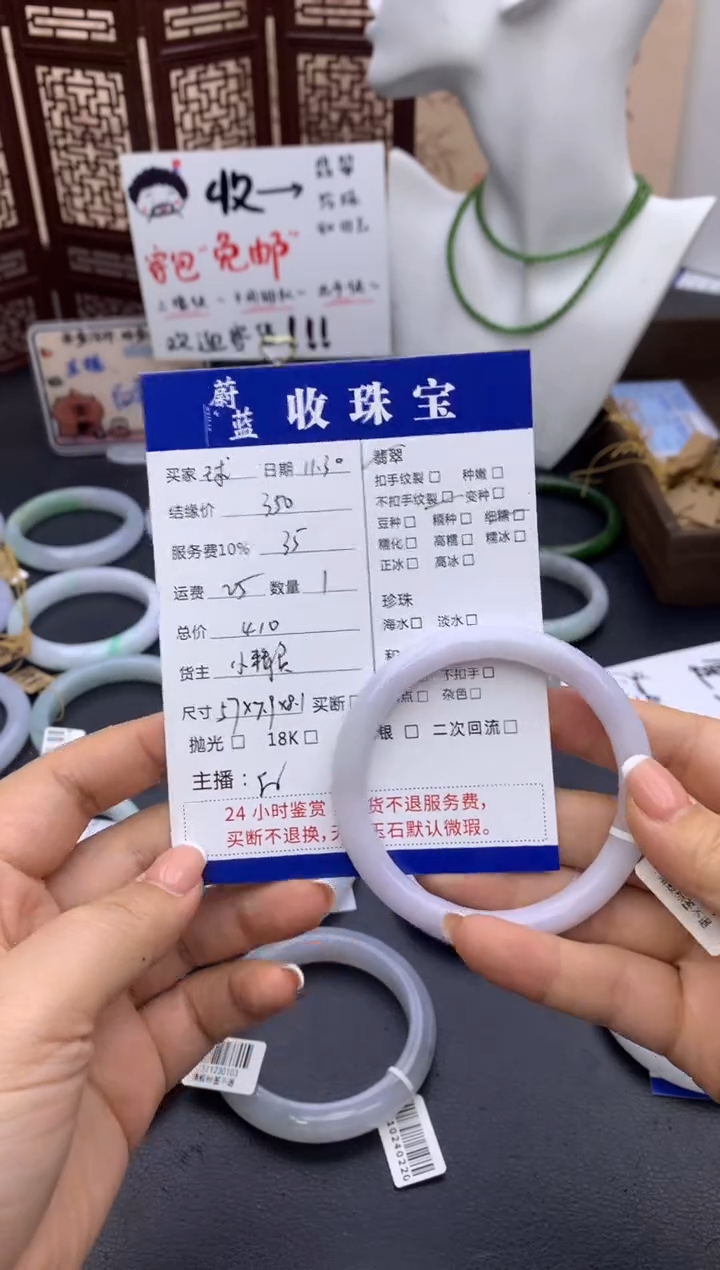 收→ 翡翠
寄包"免邮"
欢迎寄货!!!
蔚蓝 收珠宝
买家 球 日期 11.30
结缘价 350
服务费10% 35
运费 25 数量 1
总价 410
货主
尺寸 57×7.9×8.1 买断
抛光□ 18K□
主播：
翡翠
扣手纹裂□ 种嫩□
不扣手纹裂□ 变种□
豆种□ 糯种□ 细糯□
糯化□ 高糯□ 糯冰□
正冰□ 高冰□
珍珠
海水□ 淡水□
和
不扣手□
点□ 杂色□
银 □ 二次回流□
24 小时鉴赏 货不退服务费，
买断不退换, 玉石默认微瑕。
10240220